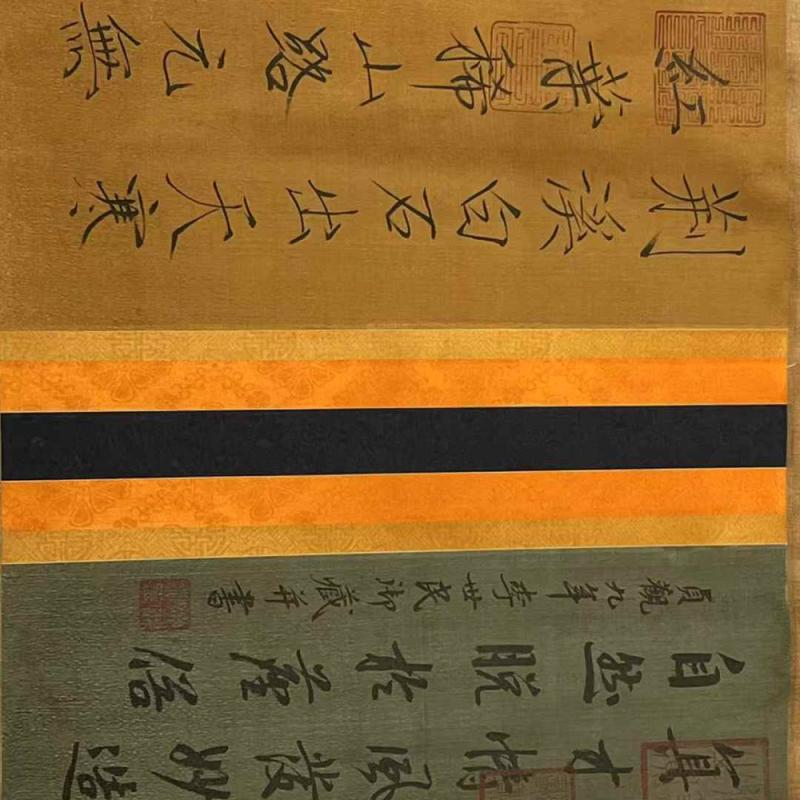 才情風發妙
自然脫於塵俗
貞觀九年李世民御藏并書
荊溪白石出天寒
紅葉稀山路元無